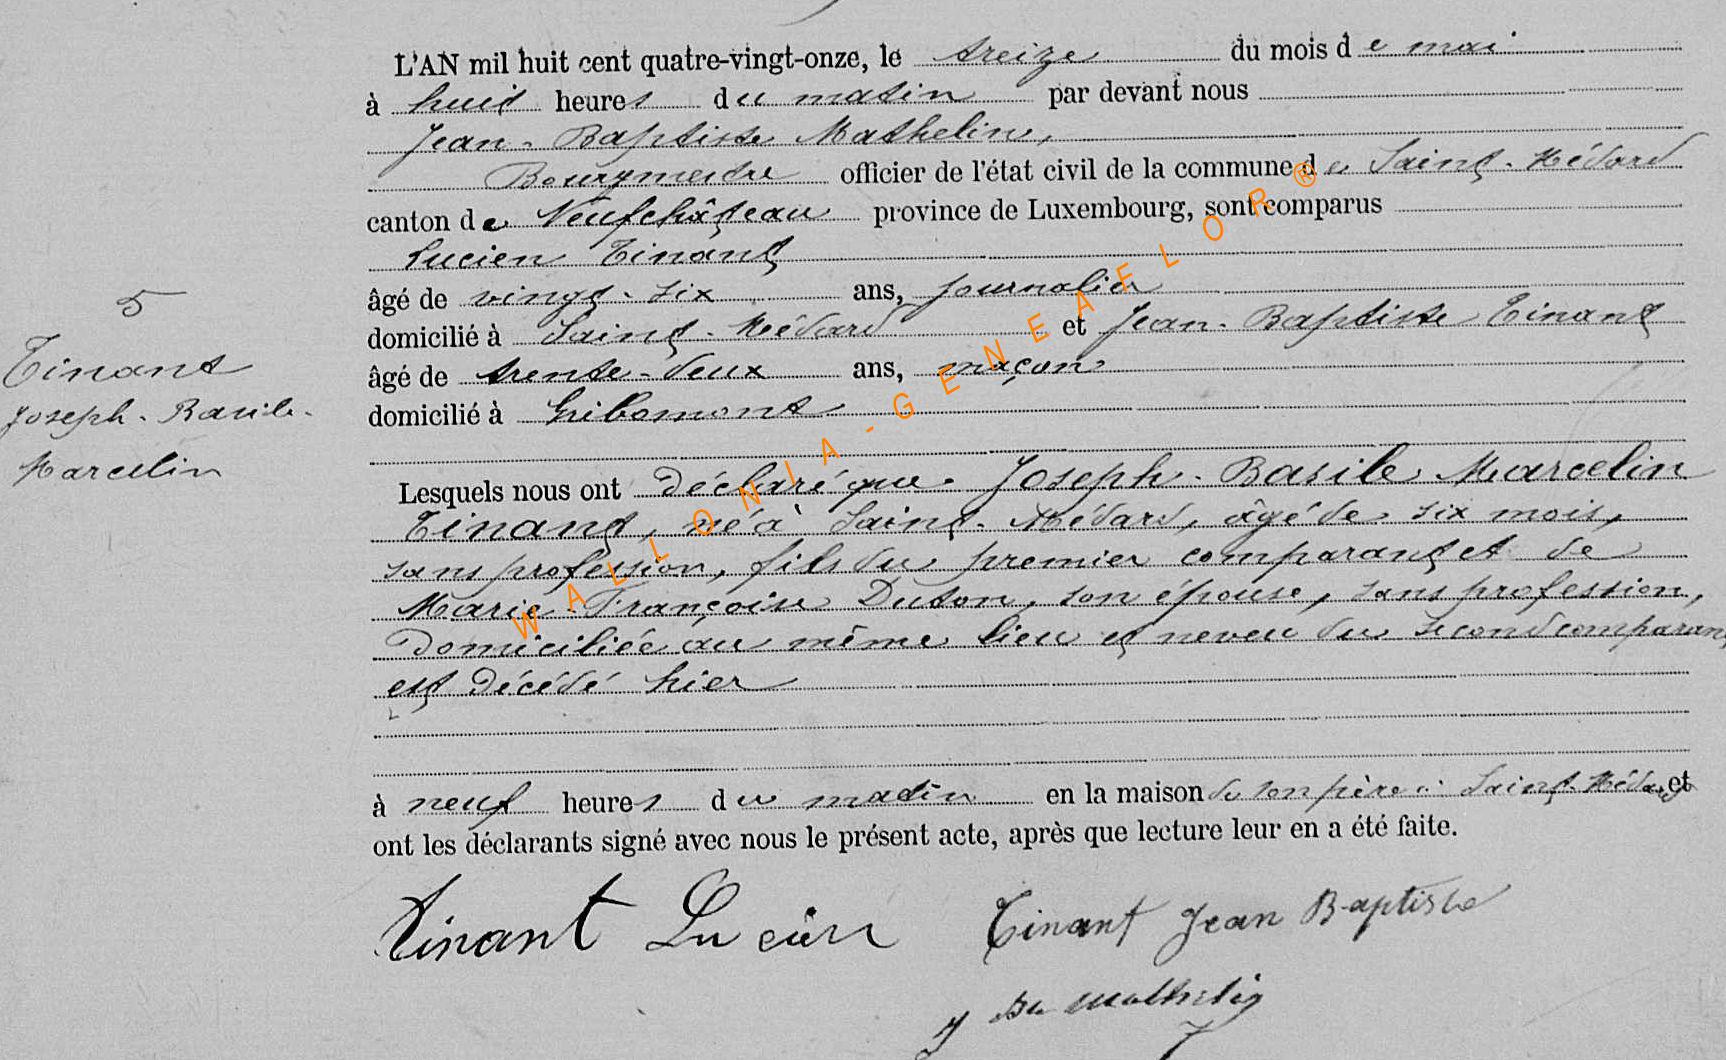 L'AN mil huit cent quatre-vingt-onze, le treize du mois de mai
à huit heures du matin par devant nous
Jean-Baptiste Mathelin,
Bourgmestre officier de l'état civil de la commune de Saint-Médard
canton de Neufchâteau province de Luxembourg, sont comparus
Lucien Tinant
âgé de vingt-six ans, journalier
domicilié à Saint-Médard et Jean-Baptiste Tinant
âgé de trente-deux ans, maçon
domicilié à Gribomont
5
Tinant
Joseph-Basile-
Marcelin
Lesquels nous ont déclaré que Joseph-Basile Marcelin
Tinant, né à Saint-Médard, âgé de six mois,
sans profession, fils du premier comparant et de
Marie-Françoise Duton, son épouse, sans profession,
domiciliée au même lieu et neveu du second comparant
est décédé hier
à neuf heures du matin en la maison de son père à Saint-Médard et
ont les déclarants signé avec nous le présent acte, après que lecture leur en a été faite.
Tinant Lucien Tinant Jean Baptiste
J Bte Mathelin
WALLONIA-GENEAELOR®